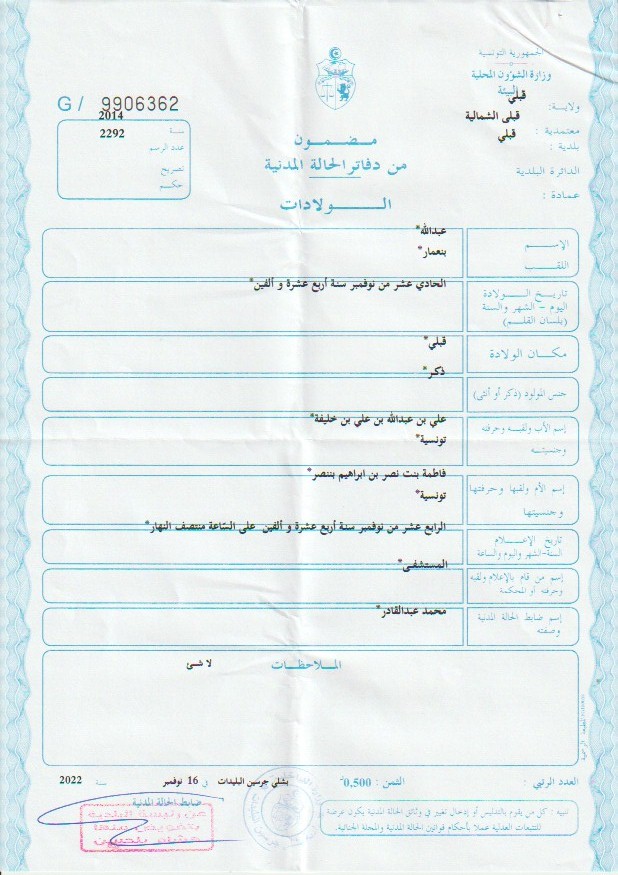 الجمهورية التونسية
وزارة الشؤون المحلية
و البيئة
ولاية: قبلي
معتمدية : قبلى الشمالية
بلدية : قبلي
الدائرة البلدية
عمادة :
G/ 9906362
2014
سنة
2292
عدد الرسم
تصريح
حكم
مضمون
من دفاتر الحالة المدنية
الولادات
الإسم
عبدالله*
اللقب
بنعمار*
تاريخ الولادة
اليوم - الشهر والسنة
(بلسان القلم)
الحادي عشر من نوفمبر سنة أربع عشرة و ألفين*
مكان الولادة
قبلي*
جنس المولود (ذكر أو أنثى)
ذكر*
إسم الأب ولقبه وحرفته
وجنسيته
علي بن عبدالله بن علي بن خليفة*
تونسية*
إسم الأم ولقبها وحرفتها
وجنسيتها
فاطمة بنت نصر بن ابراهيم بننصر*
تونسية*
تاريخ الإعلام
السنة-الشهر واليوم والساعة
الرابع عشر من نوفمبر سنة أربع عشرة و ألفين على الساعة منتصف النهار*
إسم من قام بالإعلام ولقبه
وحرفته أو المحكمة
المستشفى*
إسم ضابط الحالة المدنية
وصفته
محمد عبدالقادر*
الملاحظات
لا شئ
العدد الرتبي :
الثمن : 0,500د
بشلي جرسين البليدات في 16 نوفمبر سنة 2022
ضابط الحالة المدنية
عن رئيسة البلدية
وتفويض منها
تنبيه : كل من يقوم بالتدليس أو إدخال تغيير في وثائق الحالة المدنية يكون عرضة
للتتبعات العدلية عملا بأحكام قوانين الحالة المدنية والمجلة الجنائية.